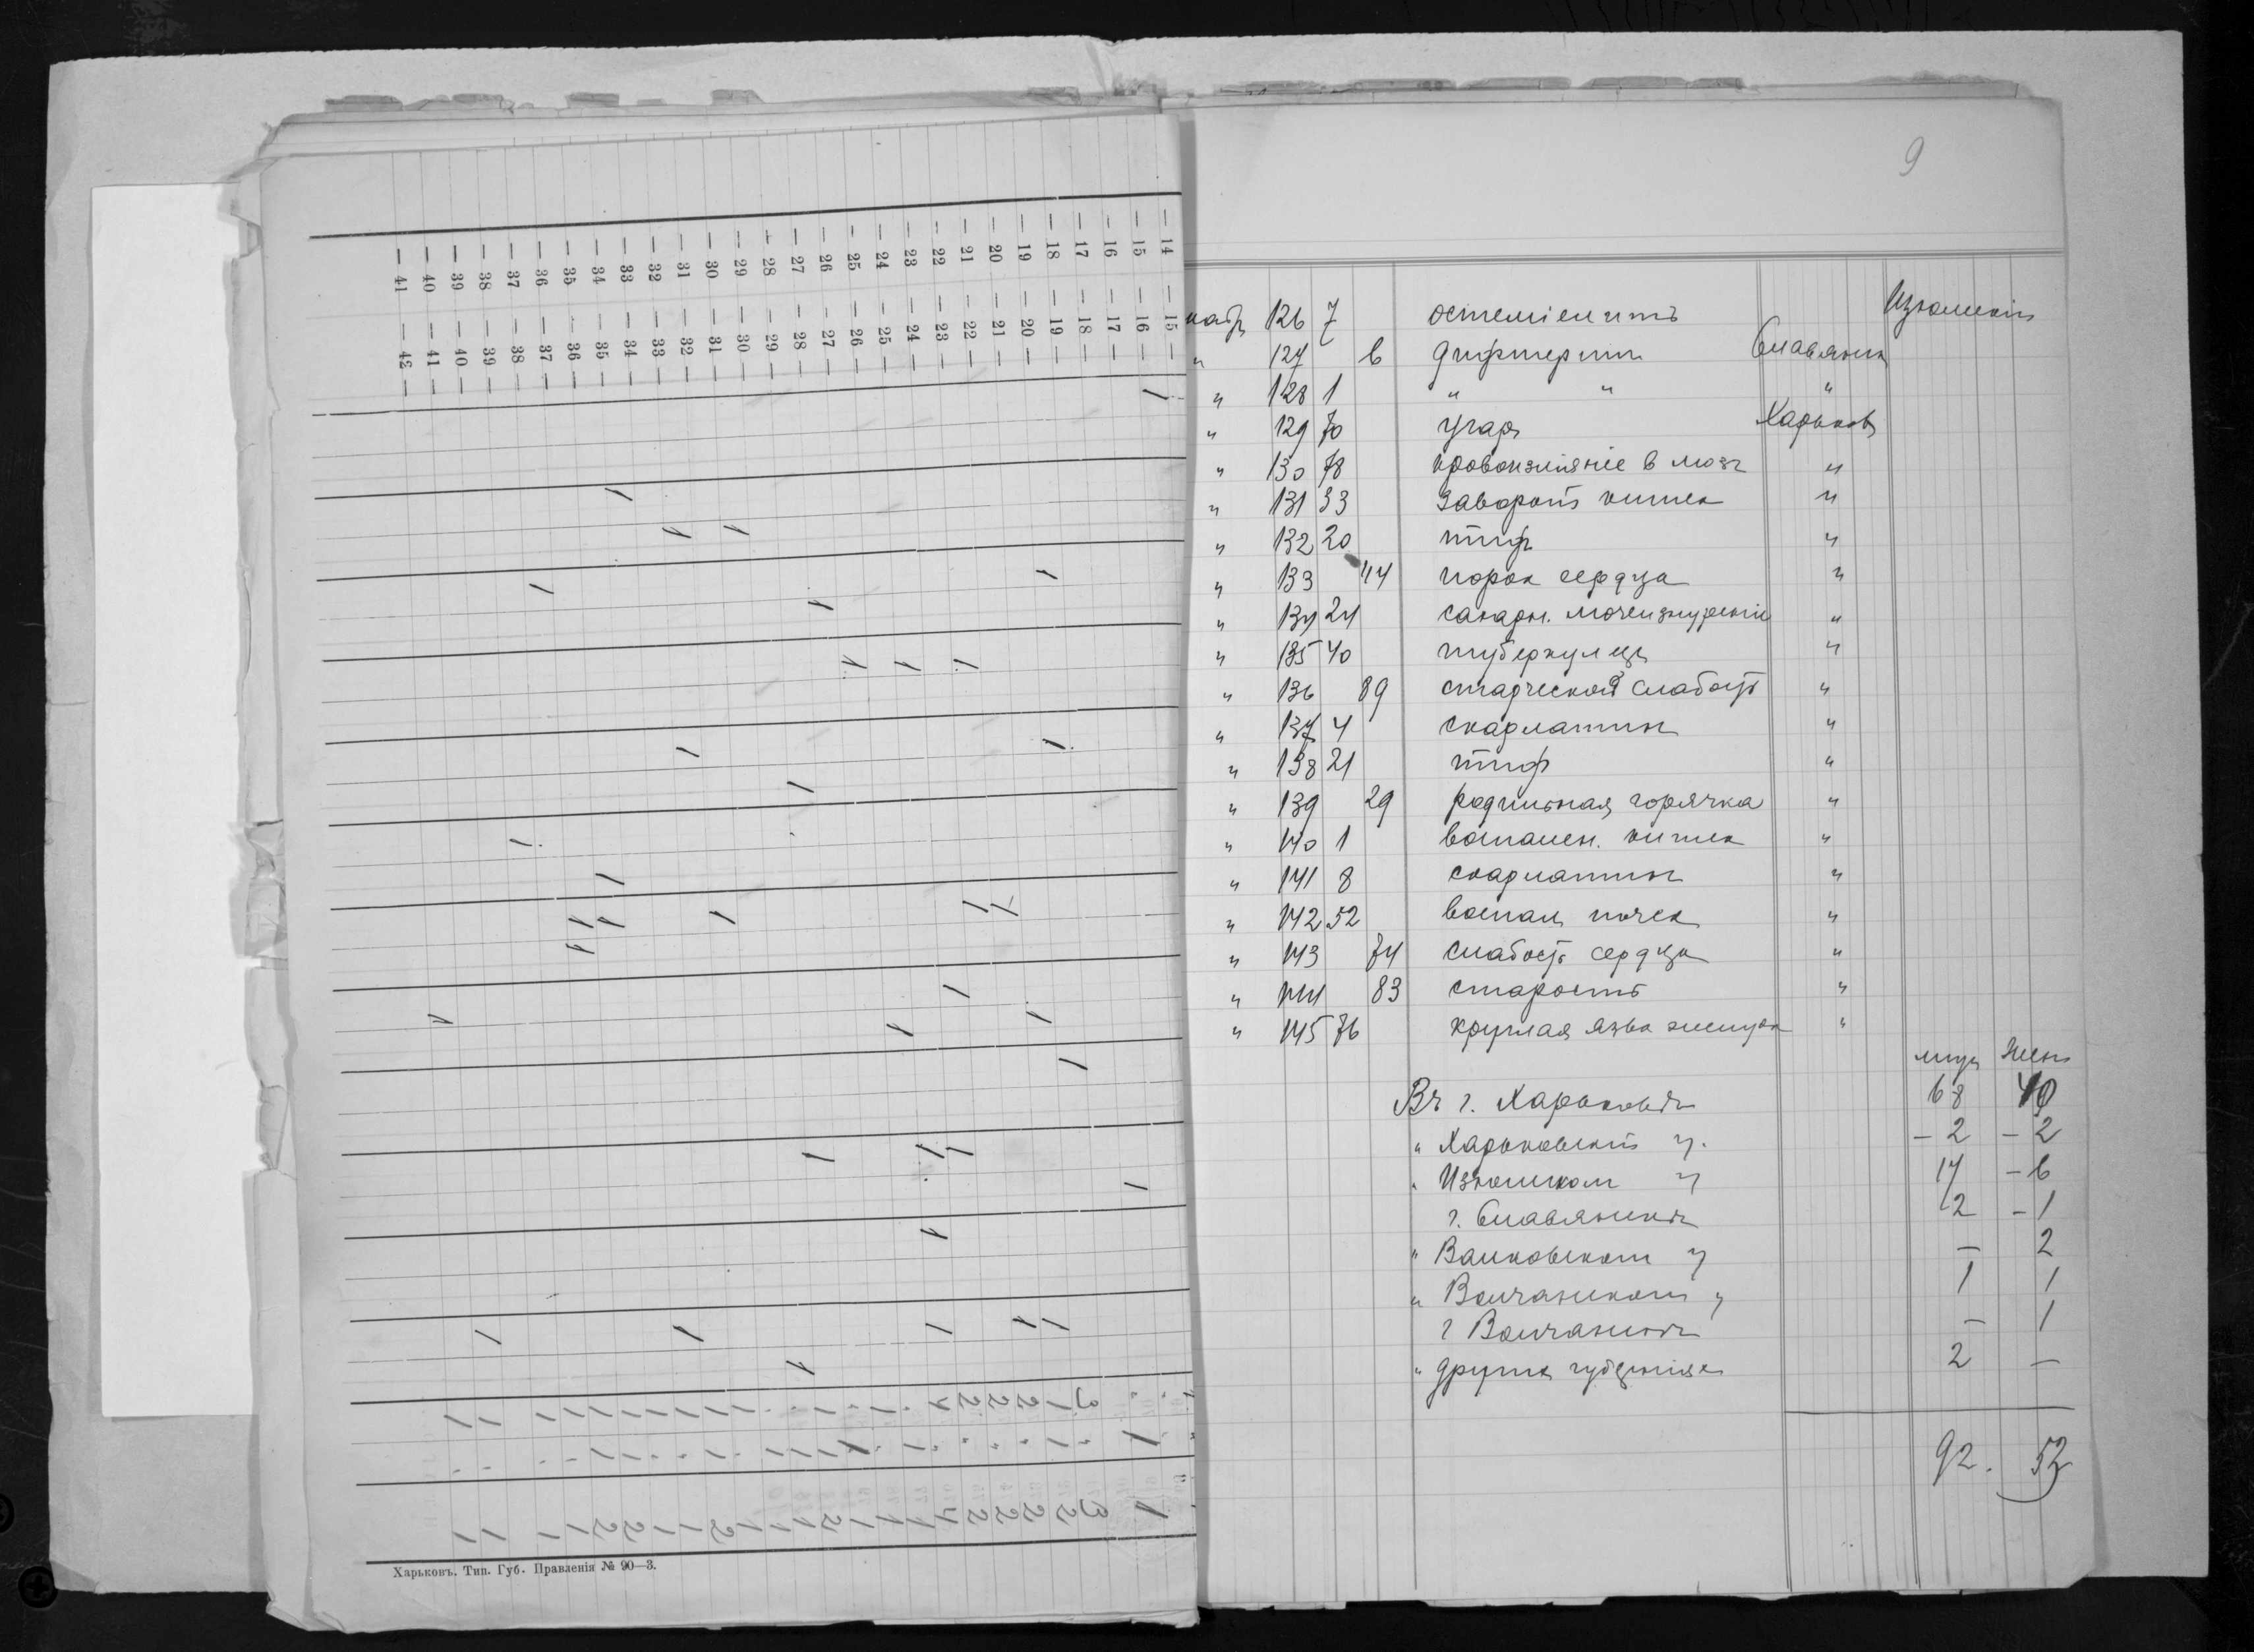 — 41 — 40 — 39 — 38 — 37 — 36 — 35 — 34 — 33 — 32 — 31 — 30 — 29 — 28 — 27 — 26 — 25 — 24 — 23 — 22 — 21 — 20 — 19 — 18 — 17 — 16 — 15 — 14
— 42 — 41 — 40 — 39 — 38 — 37 — 36 — 35 — 34 — 33 — 32 — 31 — 30 — 29 — 28 — 27 — 26 — 25 — 24 — 23 — 22 — 21 — 20 — 19 — 18 — 17 — 16 — 15 —
Харьковъ. Тип. Губ. Правленія № 90—3.
9
126 7 остеміелитъ
" 127 6 дифтерит Славянск
" 128 1 " " "
" 129 70 угар Харьковъ
" 130 78 кровоизліяніе в мозг "
" 131 33 заворотъ кишек "
" 132 20 тиф "
" 133 44 порок сердца "
" 134 24 сахарн. мочеизнуреніе "
" 135 40 туберкулез "
" 136 89 старческая слабость "
" 137 4 скарлатина "
" 138 21 тиф "
" 139 29 родильная горячка "
" 140 1 воспален. кишек "
" 141 8 скарлатина "
" 142 52 воспал. почек "
" 143 74 слабость сердца "
" 144 83 старость "
" 145 76 круглая язва желудка "
муж жен
Въ г. Харьковѣ 68 40
" Харьковскомъ у. — 2 — 2
" Изюмском у 17 — 6
г. Славянскѣ 2 — 1
" Валковском у — 2
" Волчанском " 1 1
г Волчанскѣ — 1
" других губерніях 2 —
92. 52